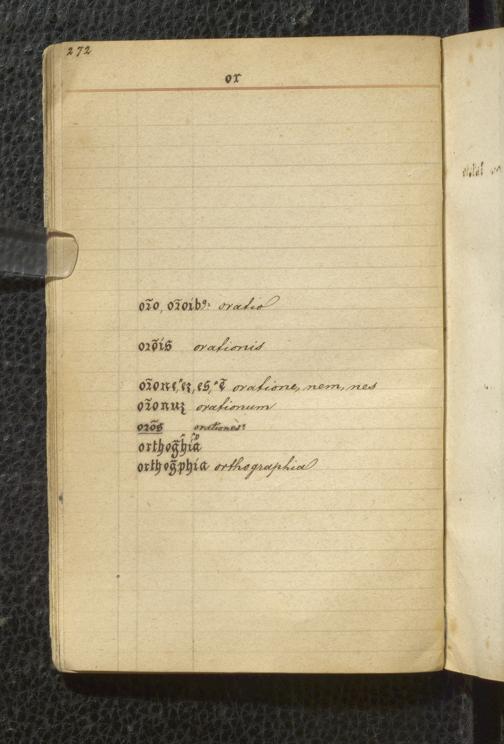 272
or
or̃o, or̃oibꝰ: oratio
or̃õis orationis
or̃one, eʒ, es, ẽ oratione, nem, nes
or̃onuʒ orationum
or̃õs orationes
orthog̃hia
orthog̃phia orthographia